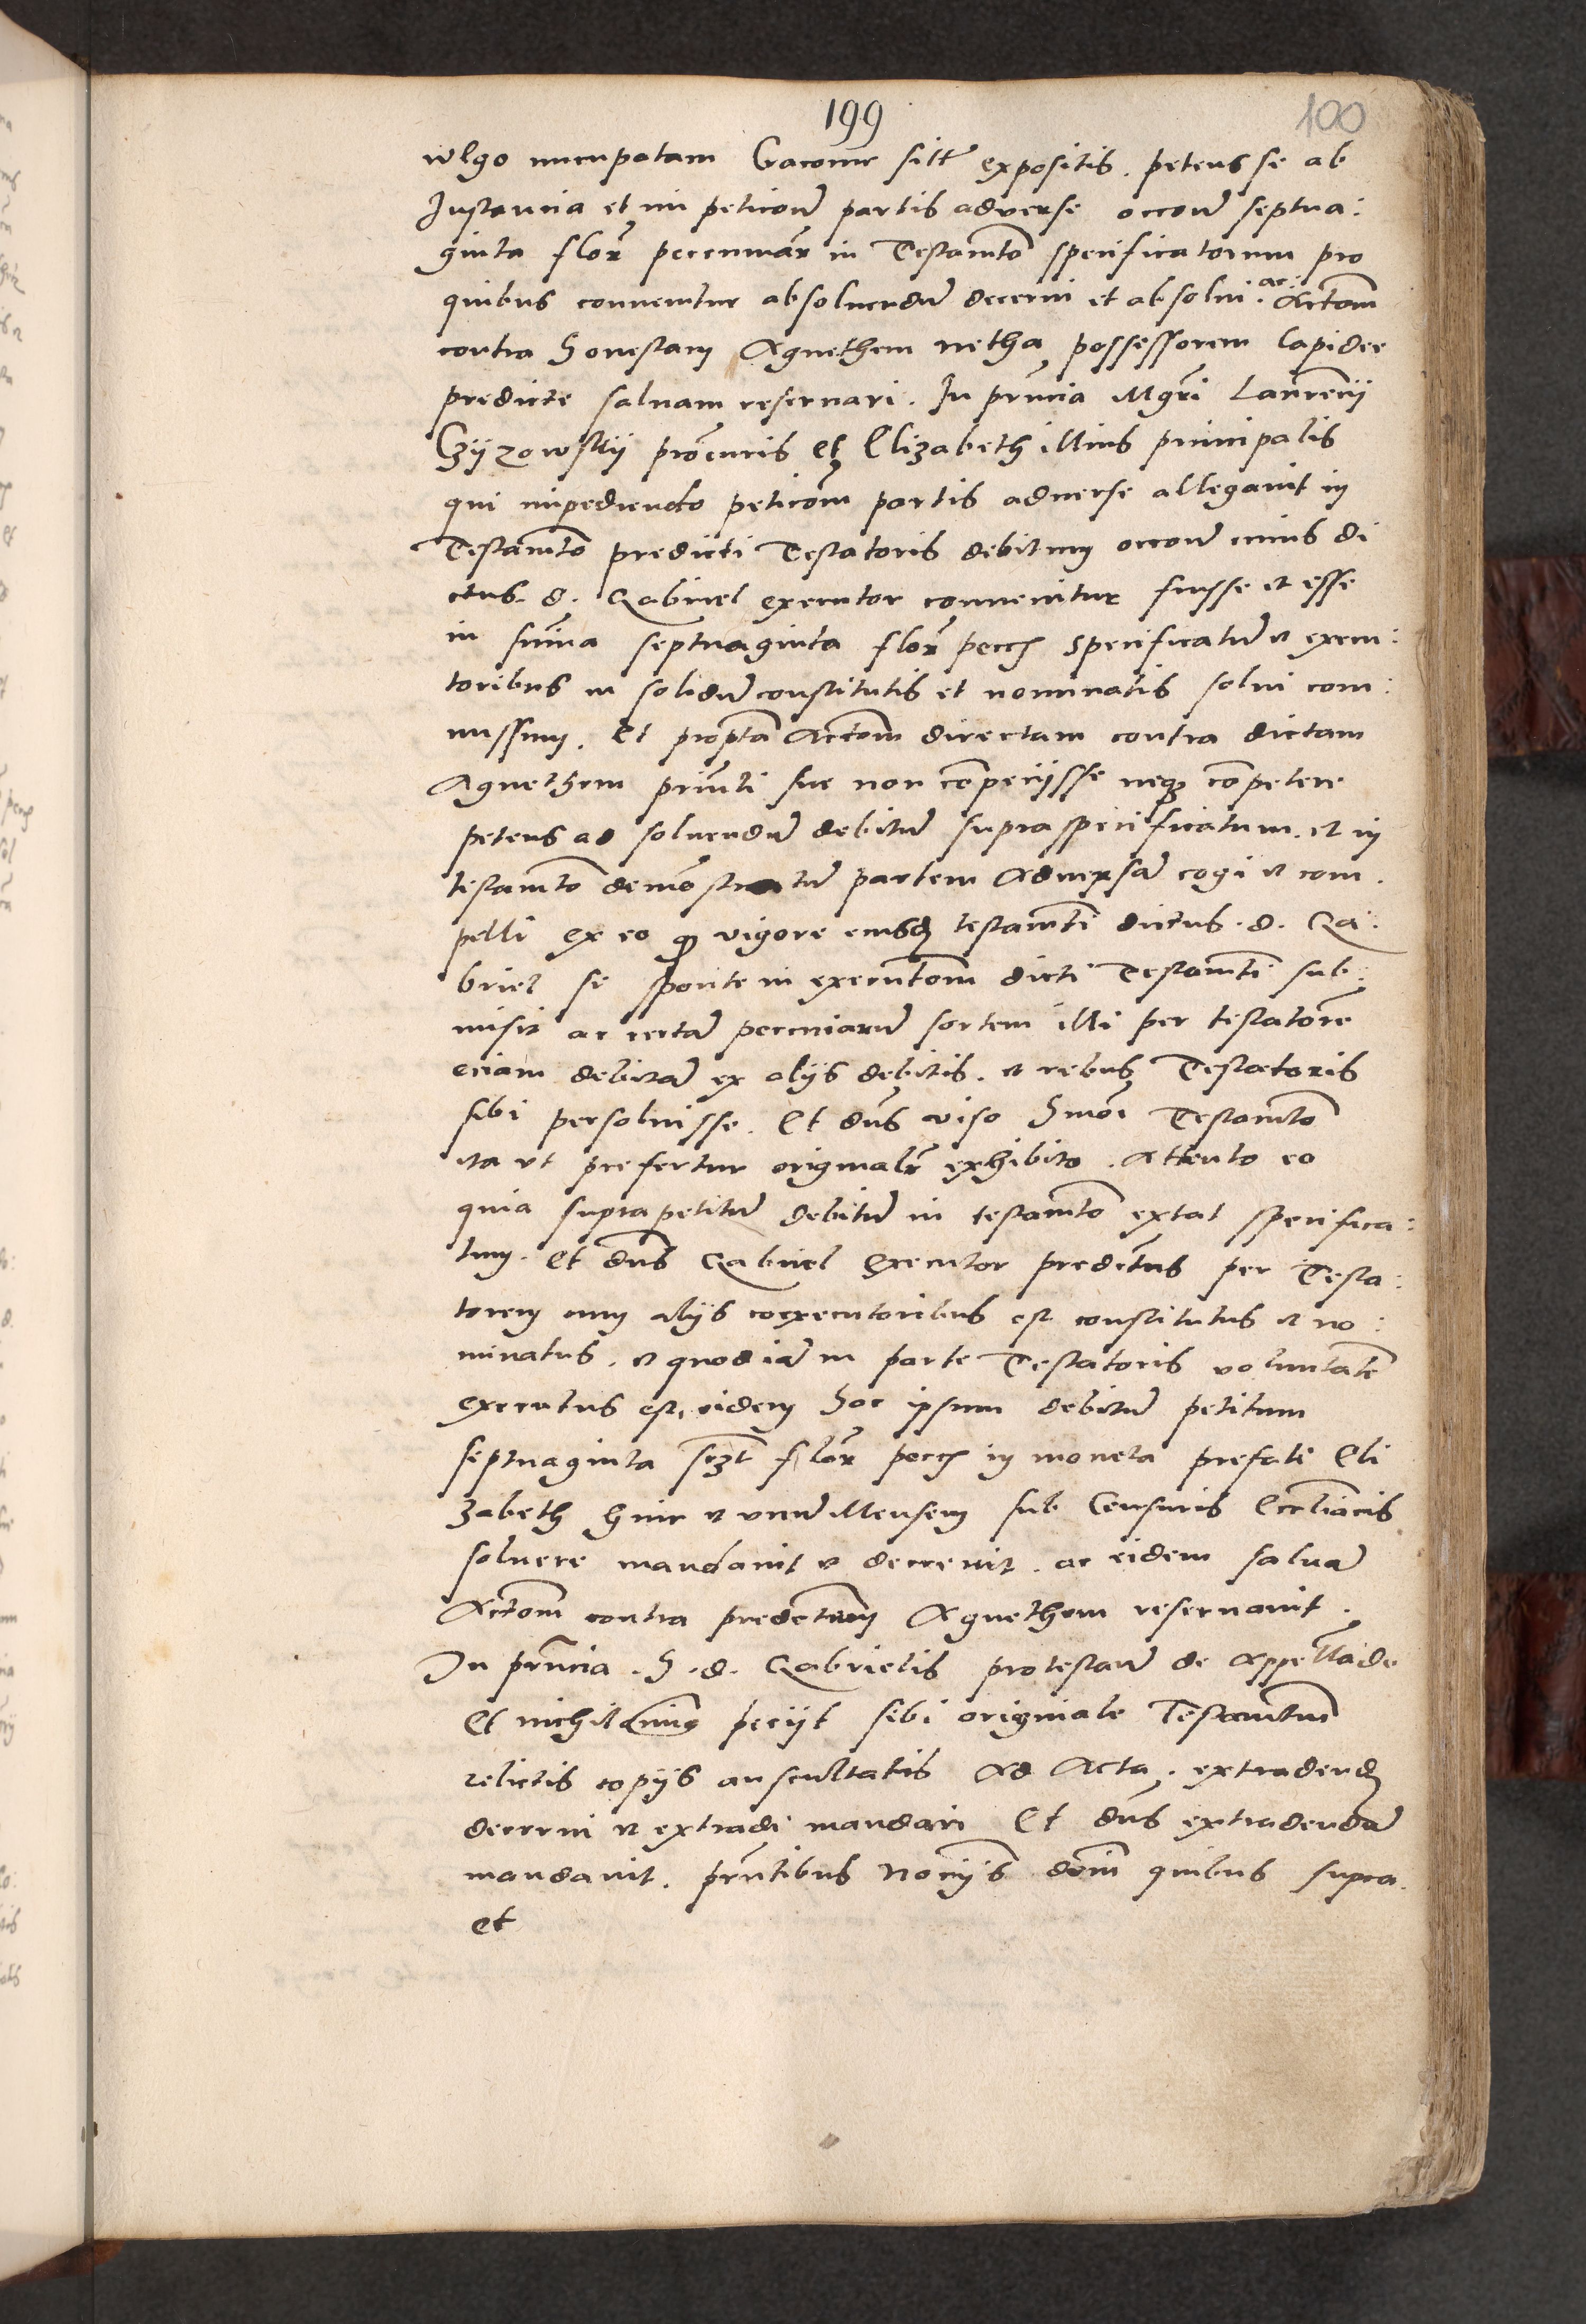 199
100
wlgo nuncupatam expositis. petens se ab
Instancia et in peticone partis adverse occone septua:
ginta flor pecuniar in Testamto specificatorum pro
quibus convenitur absolvendum decerni et absolvi. ac: Actom
contra Honestam Agnethem netha possessorem lapidee
predicte salvam reservari. In prncia Mgri Laurencii
procuris et Elizabeth illius principalis
qui impediendo peticom partis adverse allegavit in
Testamto predicti Testatoris debitum occone cuius di
ctus. d. Gabriel executor convenitur fuisse et esse
in suma septuaginta flor pecc specificatum et execu:
toribus in solidum constitutis et nominatis solvi com:
missum. Et propta Actom directam contra dictam
Agnethem prinpli sue non copetiisse neq copetere
petens ad solvendum debitum supraspecificatum. et in
testamto demostratum partem Adversam cogi et com.
pelli ex eo q vigore eiusd testamti dictus. d. Ga:
briel se sponte in executom dicti Testamti sub:
misit ac certam pecuniarum sortem illi per testatore
eciam debitam ex aliis debitis. et rebus Testatoris
sibi persolvisse. Et dns viso Hmoi Testamto
ita ut prefertur originalr exhibito. Attento eo
quia suprapetitum debitum in testamto extat specifica:
tum. Et dns Gabriel Executor predctus per Testa:
torem cum aliis coexecutoribus est constitutus et no:
minatus. et quod iam in parte Testatoris voluntate
executus est, eidem hoc ipsum debitum petitum
septuaginta flor pecc in moneta prefate Eli
zabeth hinc et unum Mensem sub Censuris Eccliacis
solvere mandavit et decrevit. ac eidem salvam
Actom contra predctam Agnethem reservavit.
In prncia. H. d. Gabrielis protestan de Appellado
Et nichilomius peciit sibi originale Testamtum
relictis copiis auscultatis Ad Acta. extradend
decerni et extradi mandari Et dns extradendam
mandavit. prntibus Nociis dom quibus supra.
et